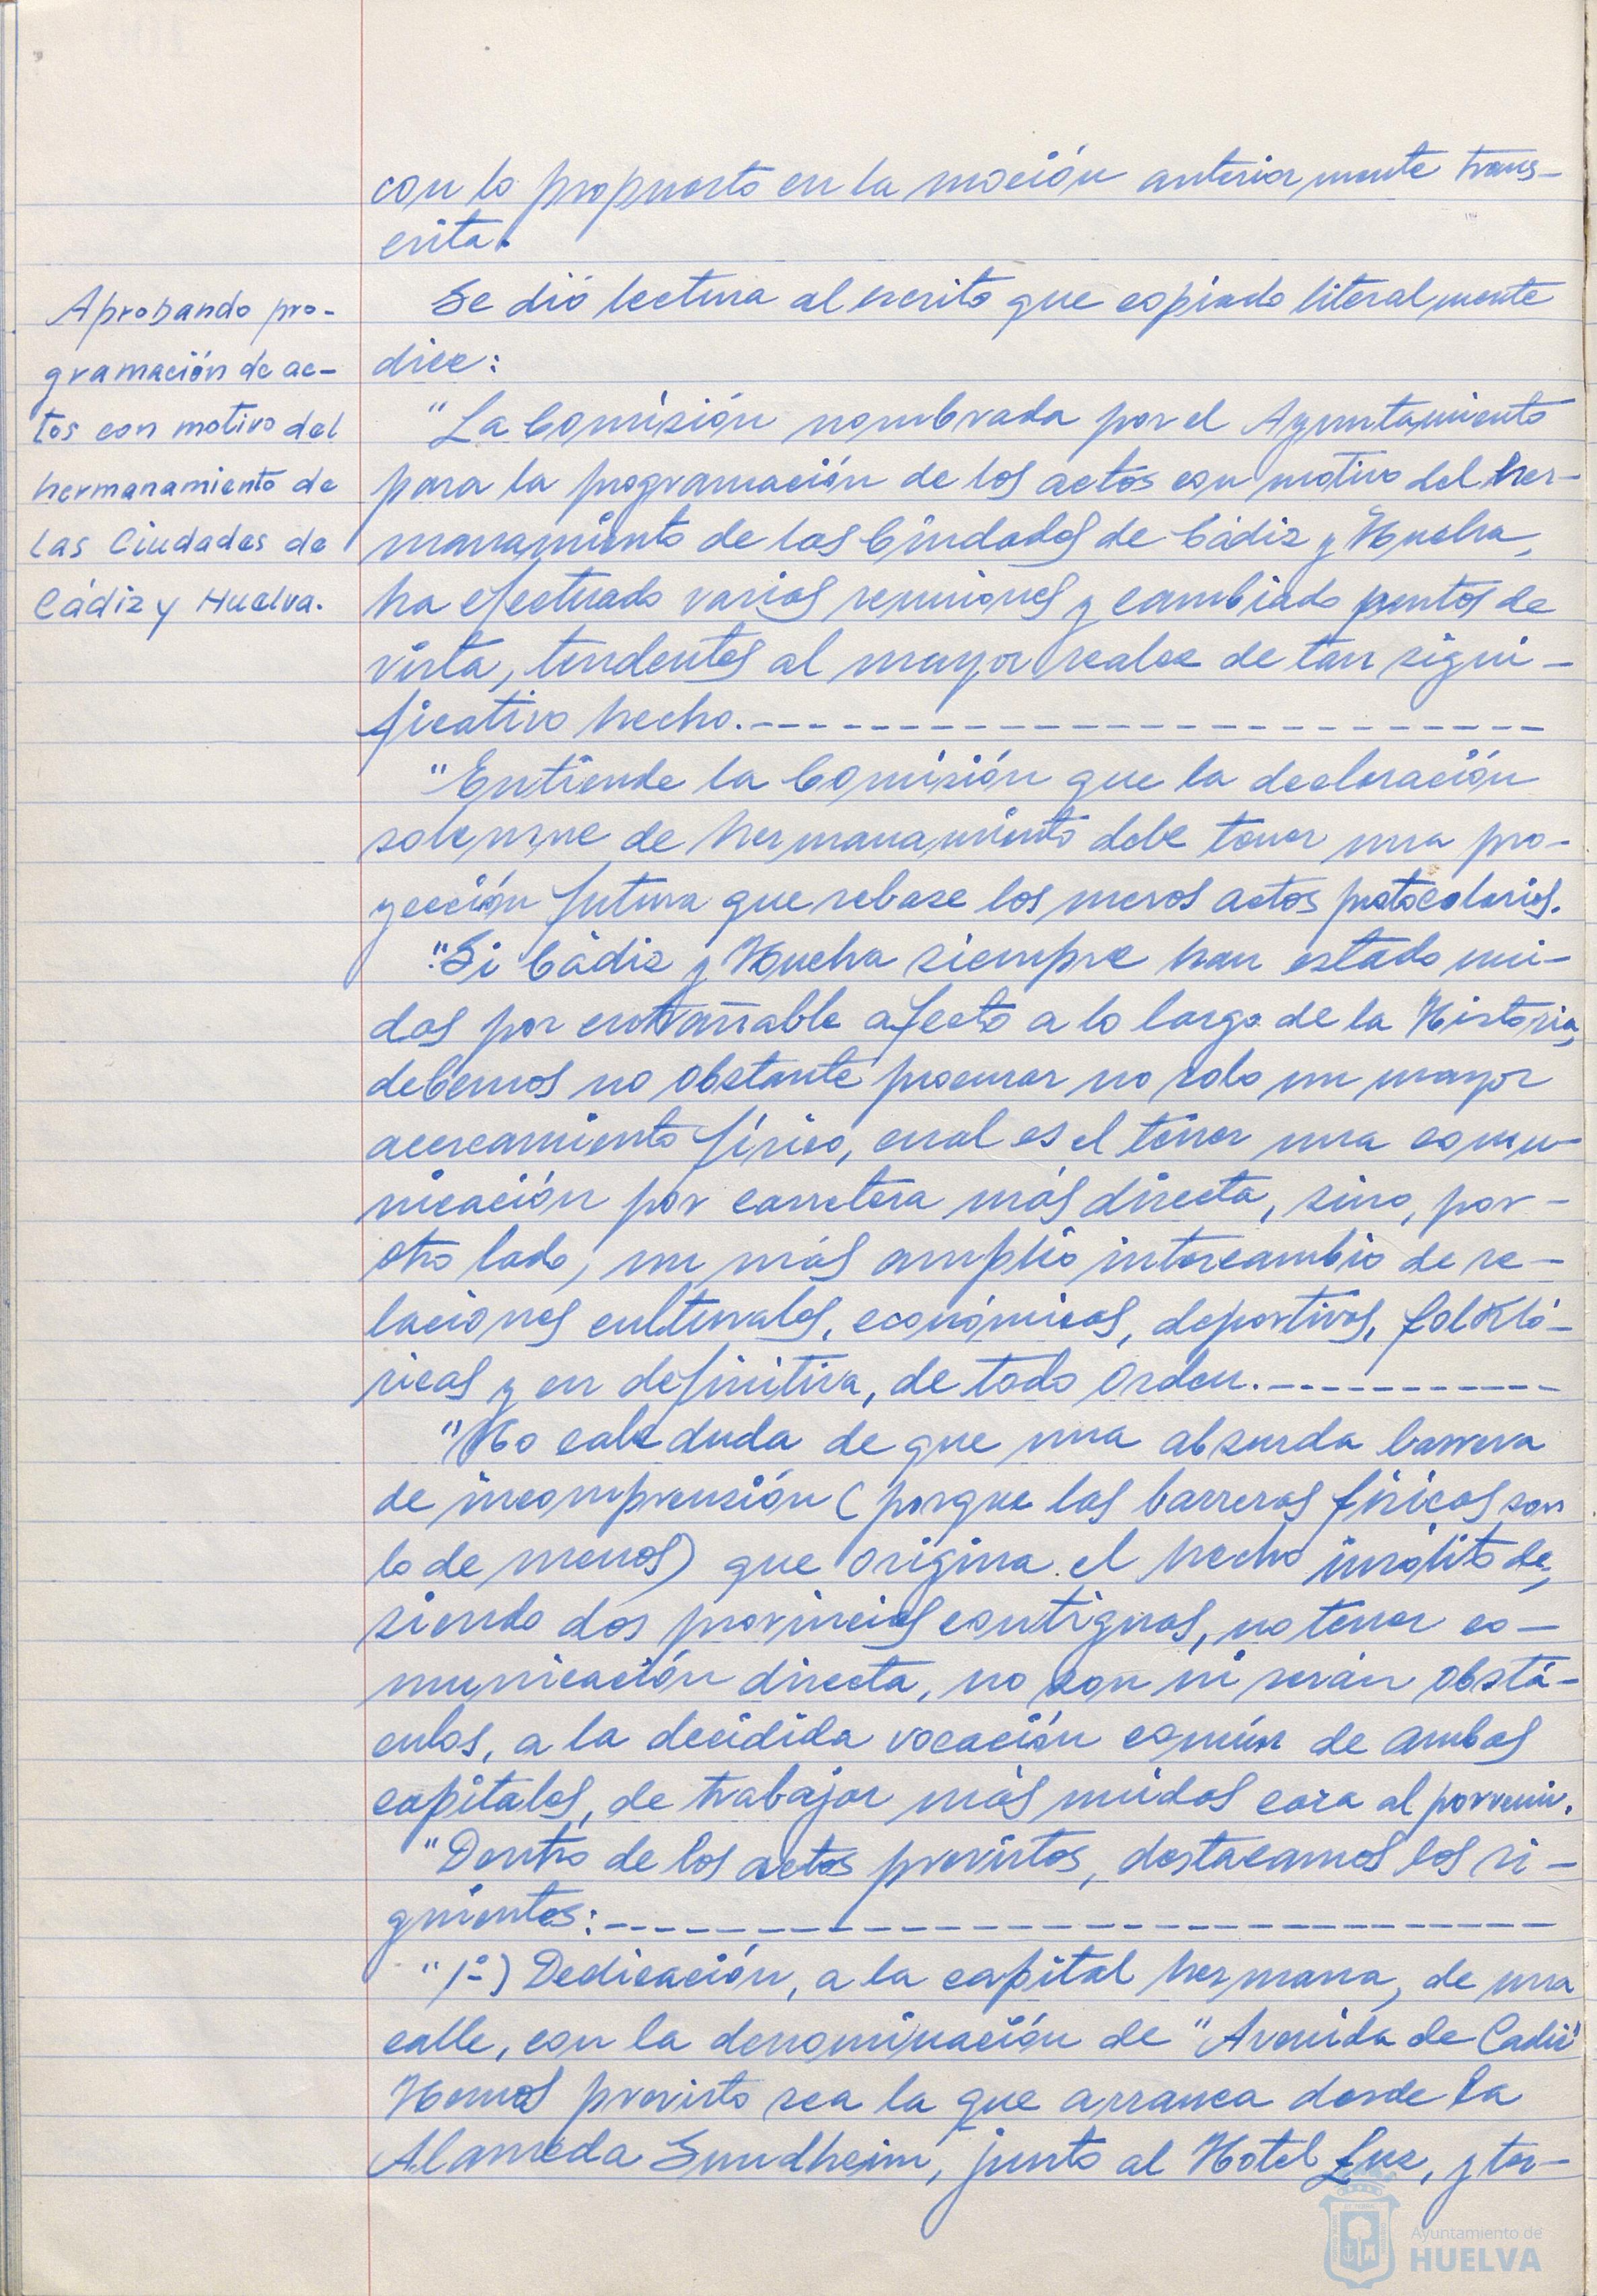 con lo propuesto en la moción anteriormente trans-
crita.
Aprobando pro-
gramación de ac-
tos con motivo del
hermanamiento de
las Ciudades de
Cádiz y Huelva.
Se dió lectura al escrito que copiado literalmente
dice:
"La Comisión nombrada por el Ayuntamiento
para la programación de los actos con motivo del her-
manamiento de las Ciudades de Cádiz y Huelva,
ha efectuado varias reuniones y cambiado puntos de
vista, tendentes al mayor realce de tan signi-
ficativo hecho.-
"Entiende la Comisión que la declaración
solemne de hermanamiento debe tener una pro-
yección futura que rebase los meros actos protocolarios.
"Si Cádiz y Huelva siempre han estado uni-
das por entrañable afecto a lo largo de la Historia,
debemos no obstante procurar no solo un mayor
acercamiento físico, cual es el tener una comu-
nicación por carretera más directa, sino, por-
otro lado, un más amplio intercambio de re-
laciones culturales, económicas, deportivas, folkló-
ricas y en definitiva, de todo orden.-
"No cabe duda de que una absurda barrera
de incomprensión (porque las barreras físicas son
lo de menos) que origina el hecho insólito de,
siendo dos provincias contiguas, no tener co-
municación directa, no son ni serán obstá-
culos, a la decidida vocación común de ambas
capitales, de trabajar más unidas cara al porvenir.
"Dentro de los actos previstos, destacamos los si-
guientes:-
"1º) Dedicación, a la capital hermana, de una
calle, con la denominación de "Avenida de Cadiz"
Hemos previsto sea la que arranca desde la
Alameda Sundheim, junto al Hotel Luz, y ter-
Ayuntamiento de
HUELVA